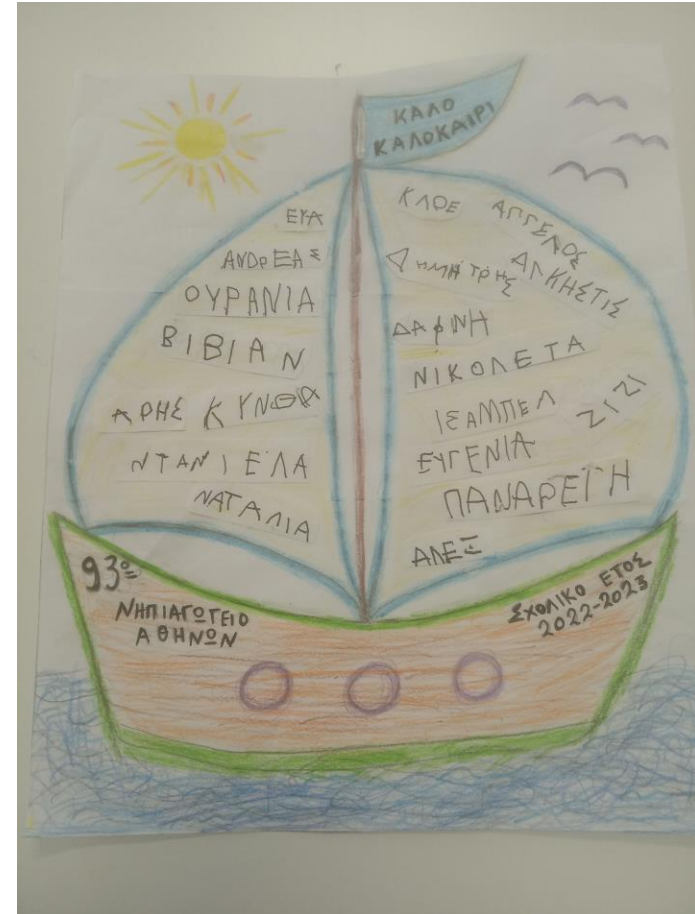 ΚΑΛΟ
ΚΑΛΟΚΑΙΡΙ
ΕΥΑ
ΑΝΔΡΕΑΣ
ΟΥΡΑΝΙΑ
ΒΙΒΙΑΝ
ΑΡΗΣ ΚΥΝΘΙΑ
ΝΤΑΝΙΕΛΑ
ΝΑΤΑΛΙΑ
ΚΛΟΕ
ΑΓΓΕΛΟΣ
ΔΗΜΗΤΡΗΣ
ΑΛΚΗΣΤΙΣ
ΔΑΦΝΗ
ΝΙΚΟΛΕΤΑ
ΙΣΑΜΠΕΛ
ΖΙΖΙ
ΕΥΓΕΝΙΑ
ΠΑΝΑΡΕΤΗ
ΑΛΕΞ
93º
ΝΗΠΙΑΓΩΓΕΙΟ
ΑΘΗΝΩΝ
ΣΧΟΛΙΚΟ ΕΤΟΣ
2022-2023